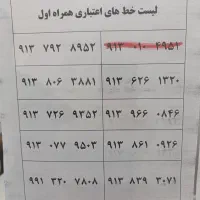 لیست خط های اعتباری همراه اول
۹۱۳ ۷۹۲ ۸۹۵۲ ۹۱۳ ۰۱۰ ۴۹۵۲
۹۱۳ ۸۰۶ ۳۸۸۱ ۹۱۳ ۶۲۶ ۱۳۲۰
۹۱۳ ۷۲۶ ۹۳۵۲ ۹۱۳ ۹۶۶ ۰۸۴۶
۹۱۳ ۰۷۷ ۹۵۰۳ ۹۱۳ ۸۶۱ ۰۹۲۶
۹۹۱ ۳۲۰ ۷۸۰۸ ۹۱۳ ۸۳۹ ۳۰۷۱